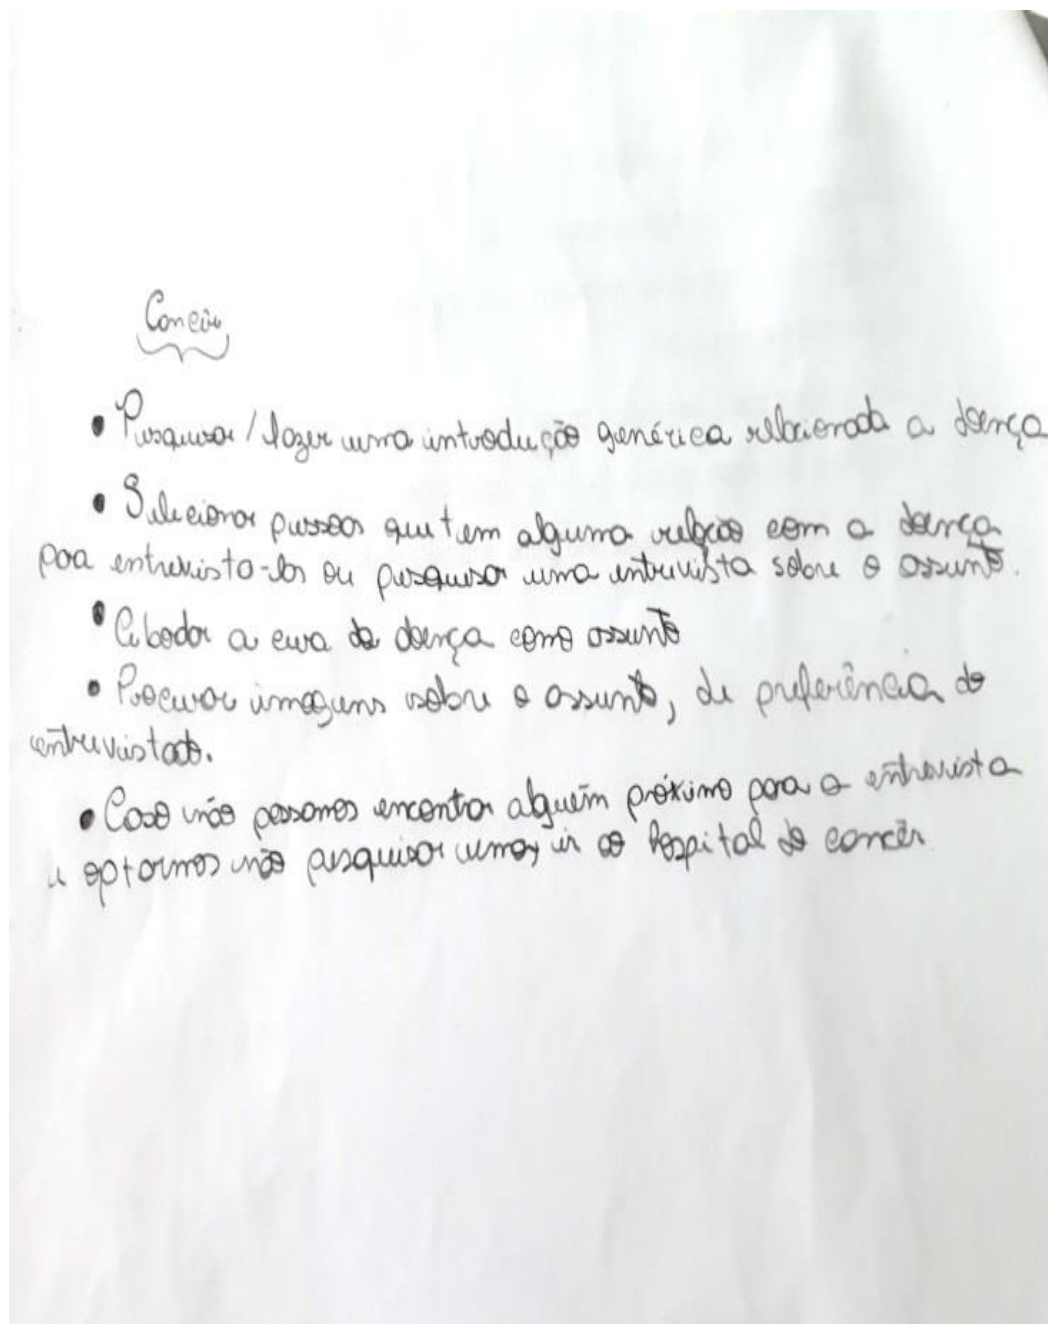 Cancêr
• Pesquisar / fazer uma introdução genérica relacionada a doença
• Selecionar pessoas que tem alguma relação com a doença
para entrevista-las ou pesquisar uma entrevista sobre o assunto.
• a cura da doença como assunto
• Procurar imagens sobre o assunto, de preferência do
entrevistado.
• Caso não possamos encontrar alguém próximo para a entrevista
e optarmos não pesquisar uma, ir ao hospital do cancêr